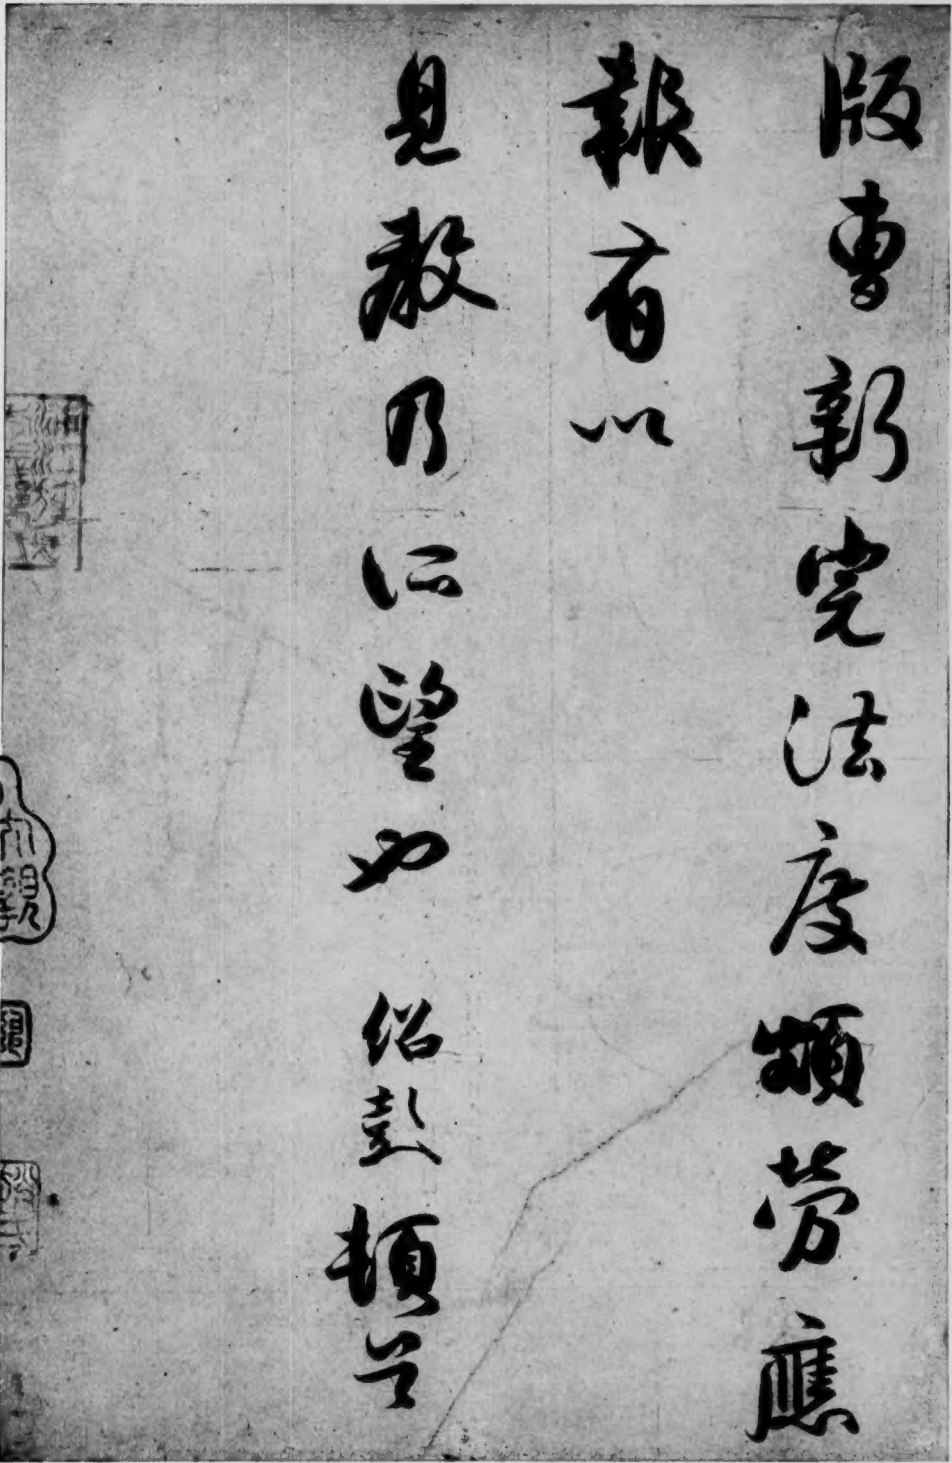 版曹新完法度頗勞應
報有以
見教乃所望也紹彭頓首